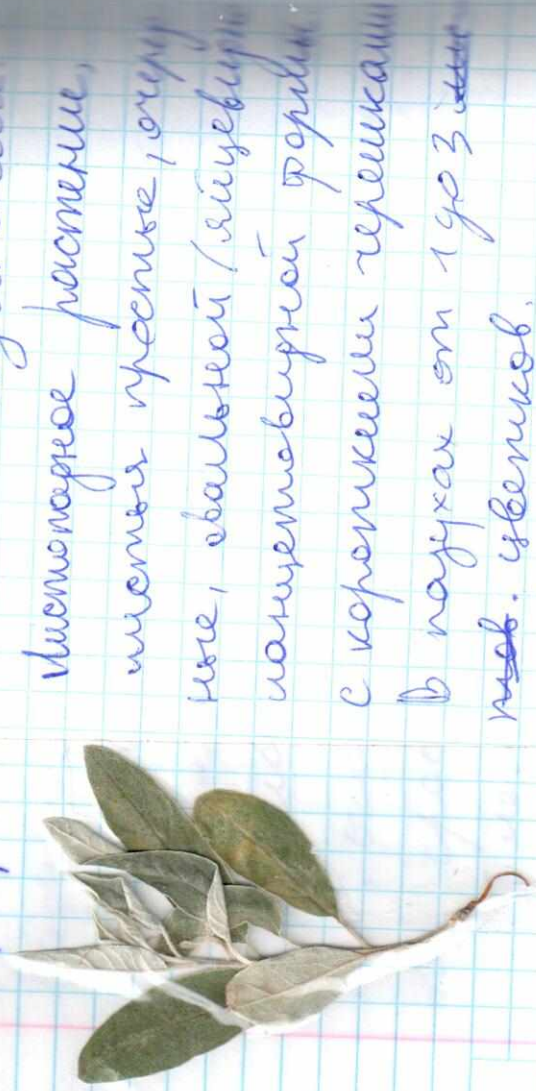 Листопадное растение,
листья простые, очерд
ные, овальной / яйцевидн
ланцетовидной формы
с короткими черешками
В пазухах от 1 до 3
цветков.